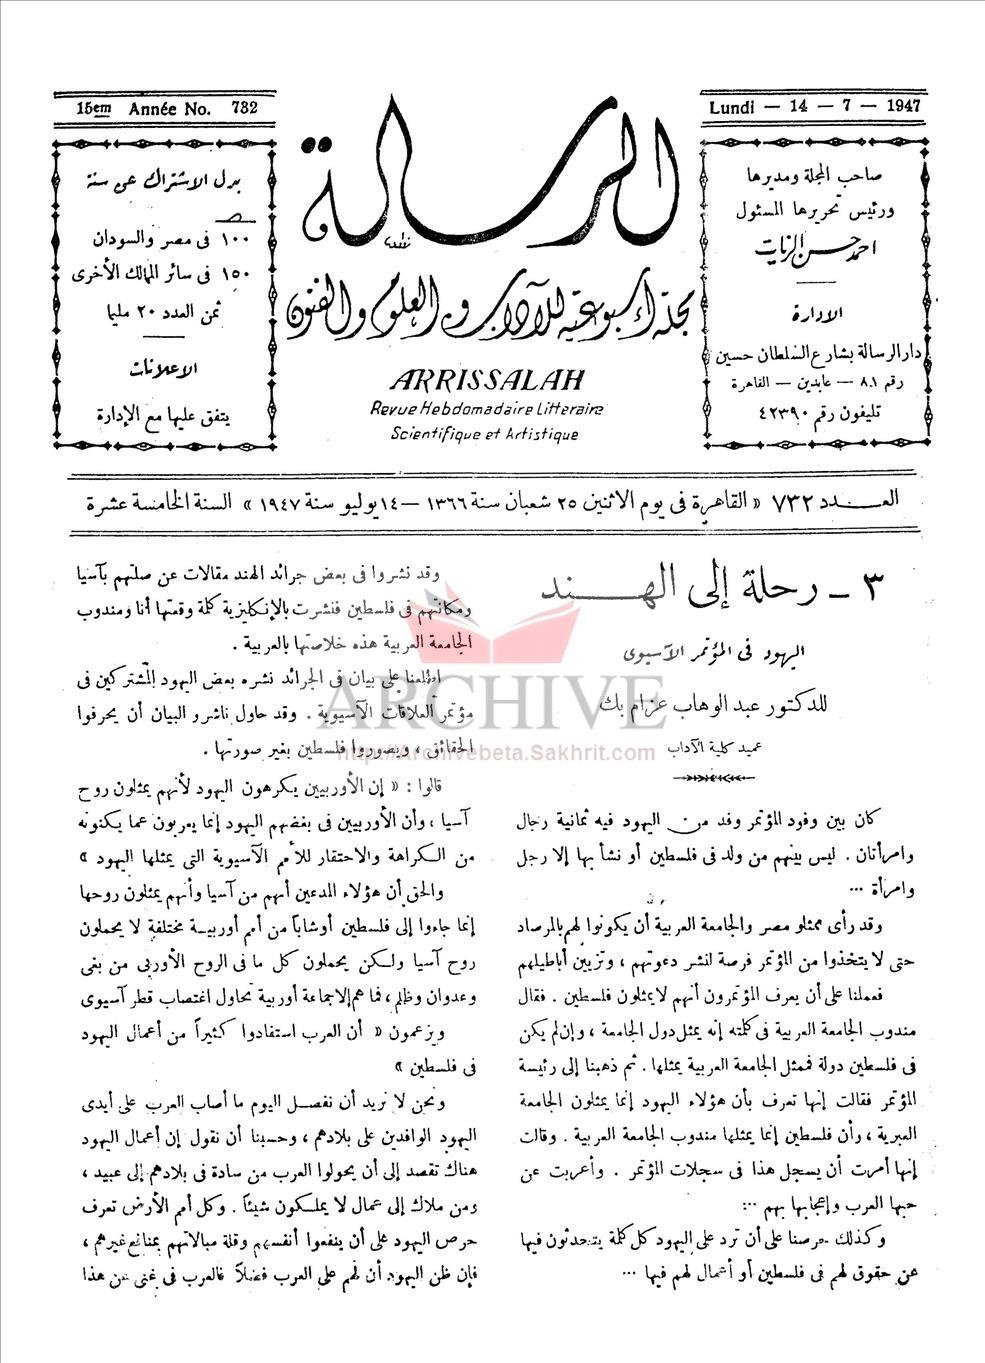 15em Année No. 732
Lundi — 14 — 7 — 1947
بدل الاشتراك عن سنة
١٠٠ فى مصر والسودان
١٥٠ فى سائر الممالك الأخرى
ثمن العدد ٢٠ مليما
الاعلانات
يتفق عليها مع الإدارة
الرسالة
مجلة أسبوعية للآداب والعلوم والفنون
ARRISSALAH
Revue Hebdomadaire Litteraire
Scientifique et Artistique
صاحب المجلة ومديرها
ورئيس تحريرها المسئول
احمد حسن الزيات
الادارة
دار الرسالة بشارع السلطان حسين
رقم ٨١ — عابدين — القاهرة
تليفون رقم ٤٢٣٩٠
العدد ٧٣٢ « القاهرة فى يوم الاثنين ٢٥ شعبان سنة ١٣٦٦ — ١٤ يوليو سنة ١٩٤٧ » السنة الخامسة عشرة
٣ — رحلة إلى الهند
اليهود فى المؤتمر الآسيوى
للدكتور عبد الوهاب عزام بك
عميد كلية الآداب
كان بين وفود المؤتمر وفد من اليهود فيه ثمانية رجال
وامرأتان . ليس بينهم من ولد فى فلسطين أو نشأ بها إلا رجل
وامرأة ...
وقد رأى ممثلو مصر والجامعة العربية أن يكونوا لهم بالمرصاد
حتى لا يتخذوا من المؤتمر فرصة لنشر دعوتهم ، وتزيين أباطيلهم
فعملنا على أن يعرف المؤتمرون أنهم لا يمثلون فلسطين . فقال
مندوب الجامعة العربية فى كلمته إنه يمثل دول الجامعة ، وإن لم يكن
فى فلسطين دولة فممثل الجامعة العربية يمثلها . ثم ذهبنا إلى رئيسة
المؤتمر فقالت إنها تعرف بأن هؤلاء اليهود إنما يمثلون الجامعة
العبرية ، وأن فلسطين إنما يمثلها مندوب الجامعة العربية . وقالت
إنها أمرت أن يسجل هذا فى سجلات المؤتمر . وأعربت عن
حبها العرب وإعجابها بهم ...
وكذلك حرصنا على أن ترد على اليهود كل كلمة يتحدثون فيها
عن حقوق لهم فى فلسطين أو أعمال لهم فيها ...
وقد نشروا فى بعض جرائد الهند مقالات عن صلتهم بآسيا
ومكانتهم فى فلسطين فنشرت بالإنكليزية كلمة وقعتها أنا ومندوب
الجامعة العربية هذه خلاصتها بالعربية .
اطلعنا على بيان فى الجرائد نشره بعض اليهود المشتركين فى
مؤتمر العلاقات الآسيوية . وقد حاول ناشرو البيان أن يحرفوا
الحقائق ، ويصوروا فلسطين بغير صورتها .
قالوا : « إن الأوربيين يكرهون اليهود لأنهم يمثلون روح
آسيا ، وأن الأوربيين فى بغضهم اليهود إنما يعربون عما يكنونه
من الكراهة والاحتقار للأمم الآسيوية التى يمثلها اليهود »
والحق أن هؤلاء المدعين أنهم من آسيا وأنهم يمثلون روحها
إنما جاءوا إلى فلسطين أوشابا من أمم أوربية مختلفة لا يحملون
روح آسيا ولكن يحملون كل ما فى الروح الأوربى من بغى
وعدوان وظلم ، فما هم إلا جماعة أوربية تحاول اغتصاب قطر آسيوى
ويزعمون « أن العرب استفادوا كثيراً من أعمال اليهود
فى فلسطين »
ونحن لا نريد أن نفصل اليوم ما أصاب العرب على أيدى
اليهود الوافدين على بلادهم ، وحسبنا أن نقول إن أعمال اليهود
هناك تقصد إلى أن يحولوا العرب من سادة فى بلادهم إلى عبيد ،
ومن ملاك إلى عمال لا يملكون شيئاً . وكل أمم الأرض تعرف
حرص اليهود على أن ينفعوا أنفسهم وقلة مبالاتهم بمنافع غيرهم ،
فإن ظن اليهود أن لهم على العرب فضلاً فالعرب فى غنى عن هذا
ARCHIVE
http://Archivebeta.Sakhrit.com